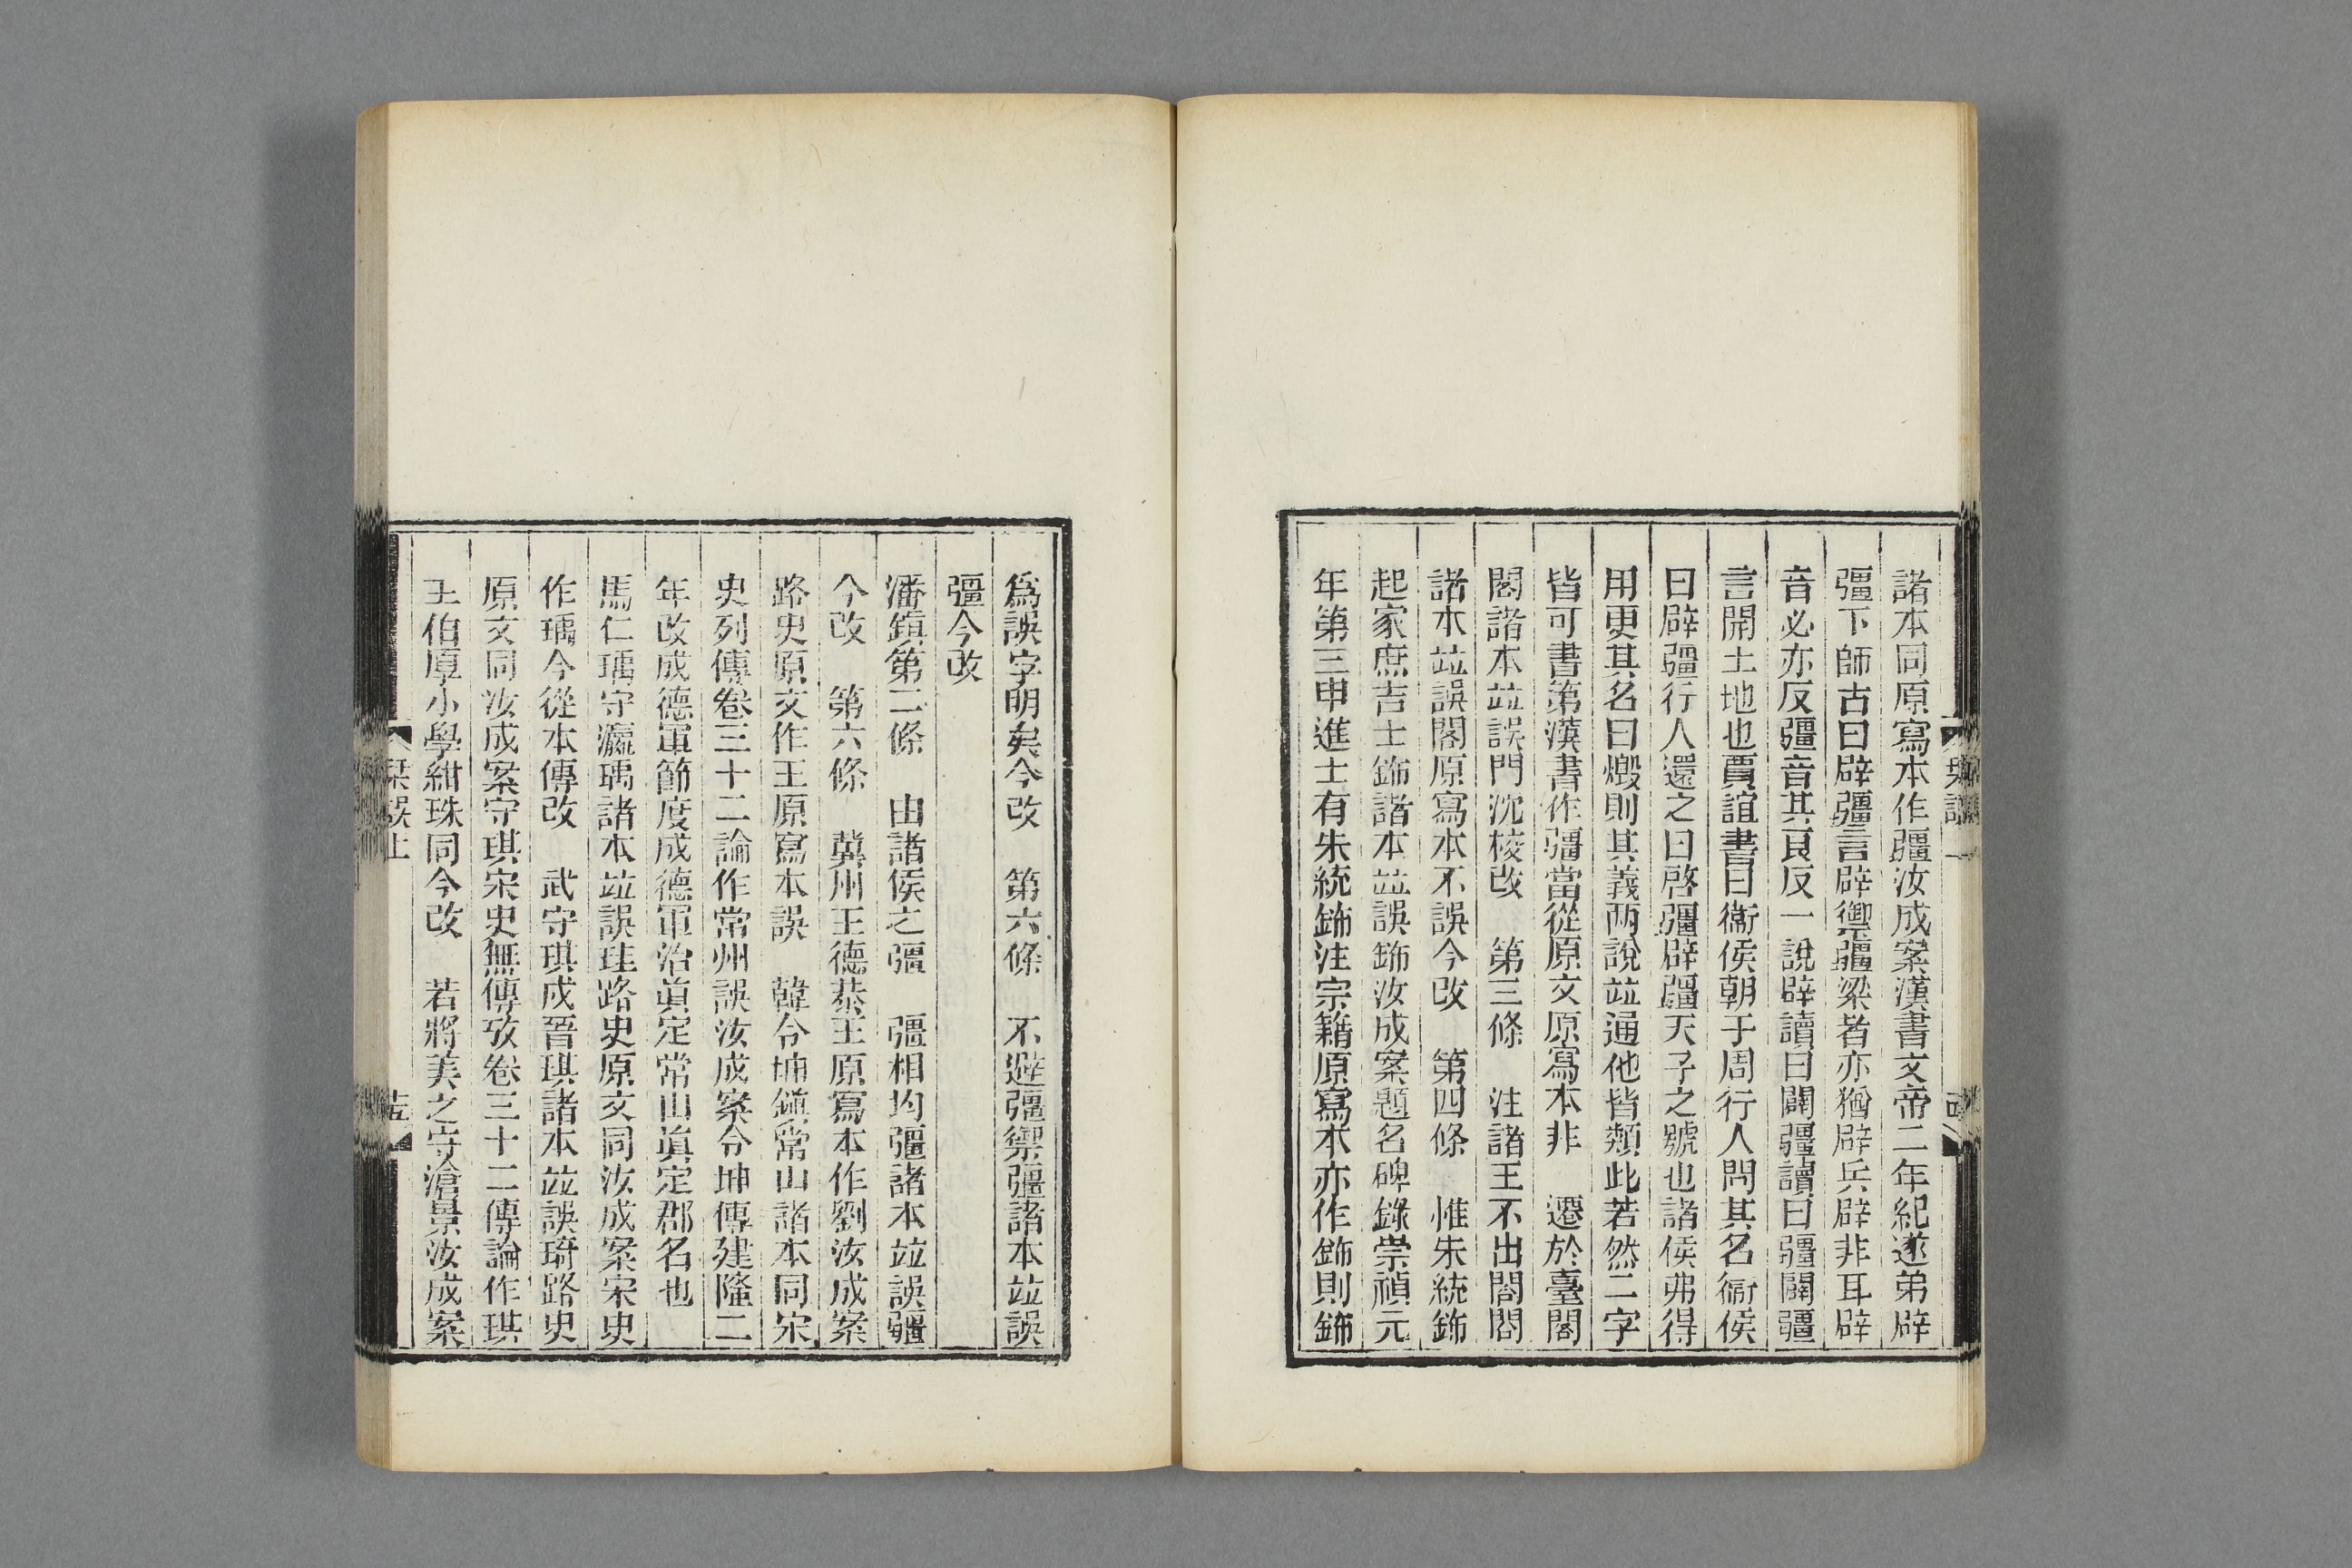 諸本同原寫本作疆汝成案漢書文帝二年紀遂弟辟
彊下師古曰辟彊言辟禦彊梁者亦猶辟兵辟非耳辟
音必亦反彊音其良反一說辟讀曰闢彊讀曰疆闢疆
言開土地也賈誼書曰衞侯朝于周行人問其名衞侯
曰辟疆行人還之曰啓疆辟疆天子之號也諸侯弗得
用更其名曰燬則其義兩說竝通他皆類此若然二字
皆可書第漢書作彊當從原文原寫本非　遷於臺閣
閣諸本竝誤門沈校改　第三條　注諸王不出閤閤
諸本竝誤閣原寫本不誤今改　第四條　惟朱統鈽
起家庶吉士鈽諸本竝誤鈽汝成案題名碑錄崇禎元
年第三甲進士有朱統鈽注宗籍原寫本亦作鈽則鈽
爲誤字明矣今改　第六條　不避彊禦彊諸本竝誤
疆今改
潘鎮第二條　由諸侯之彊　彊相均彊諸本竝誤疆
今改　第六條　冀州王德恭王原寫本作劉汝成案
路史原文作王原寫本誤　韓令坤鎮常山諸本同宋
史列傳卷三十二論作常州誤汝成案令坤傳建隆二
年改成德軍節度成德軍治眞定常山眞定郡名也
馬仁瑀守瀛瑀諸本竝誤珪路史原文同汝成案宋史
作瑀今從本傳改　武守琪戍晉琪諸本竝誤琦路史
原文同汝成案守琪宋史無傳攷卷三十二傳論作琪
王伯厚小學紺珠同今改　若將美之守滄景汝成案
栞誤上